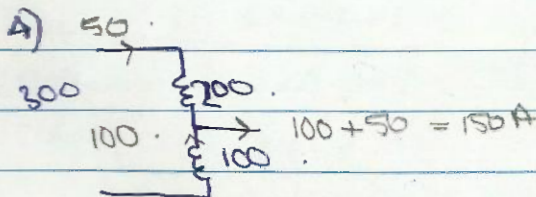 A) 50.
300 200.
100. 100 + 50 = 150 A
100.